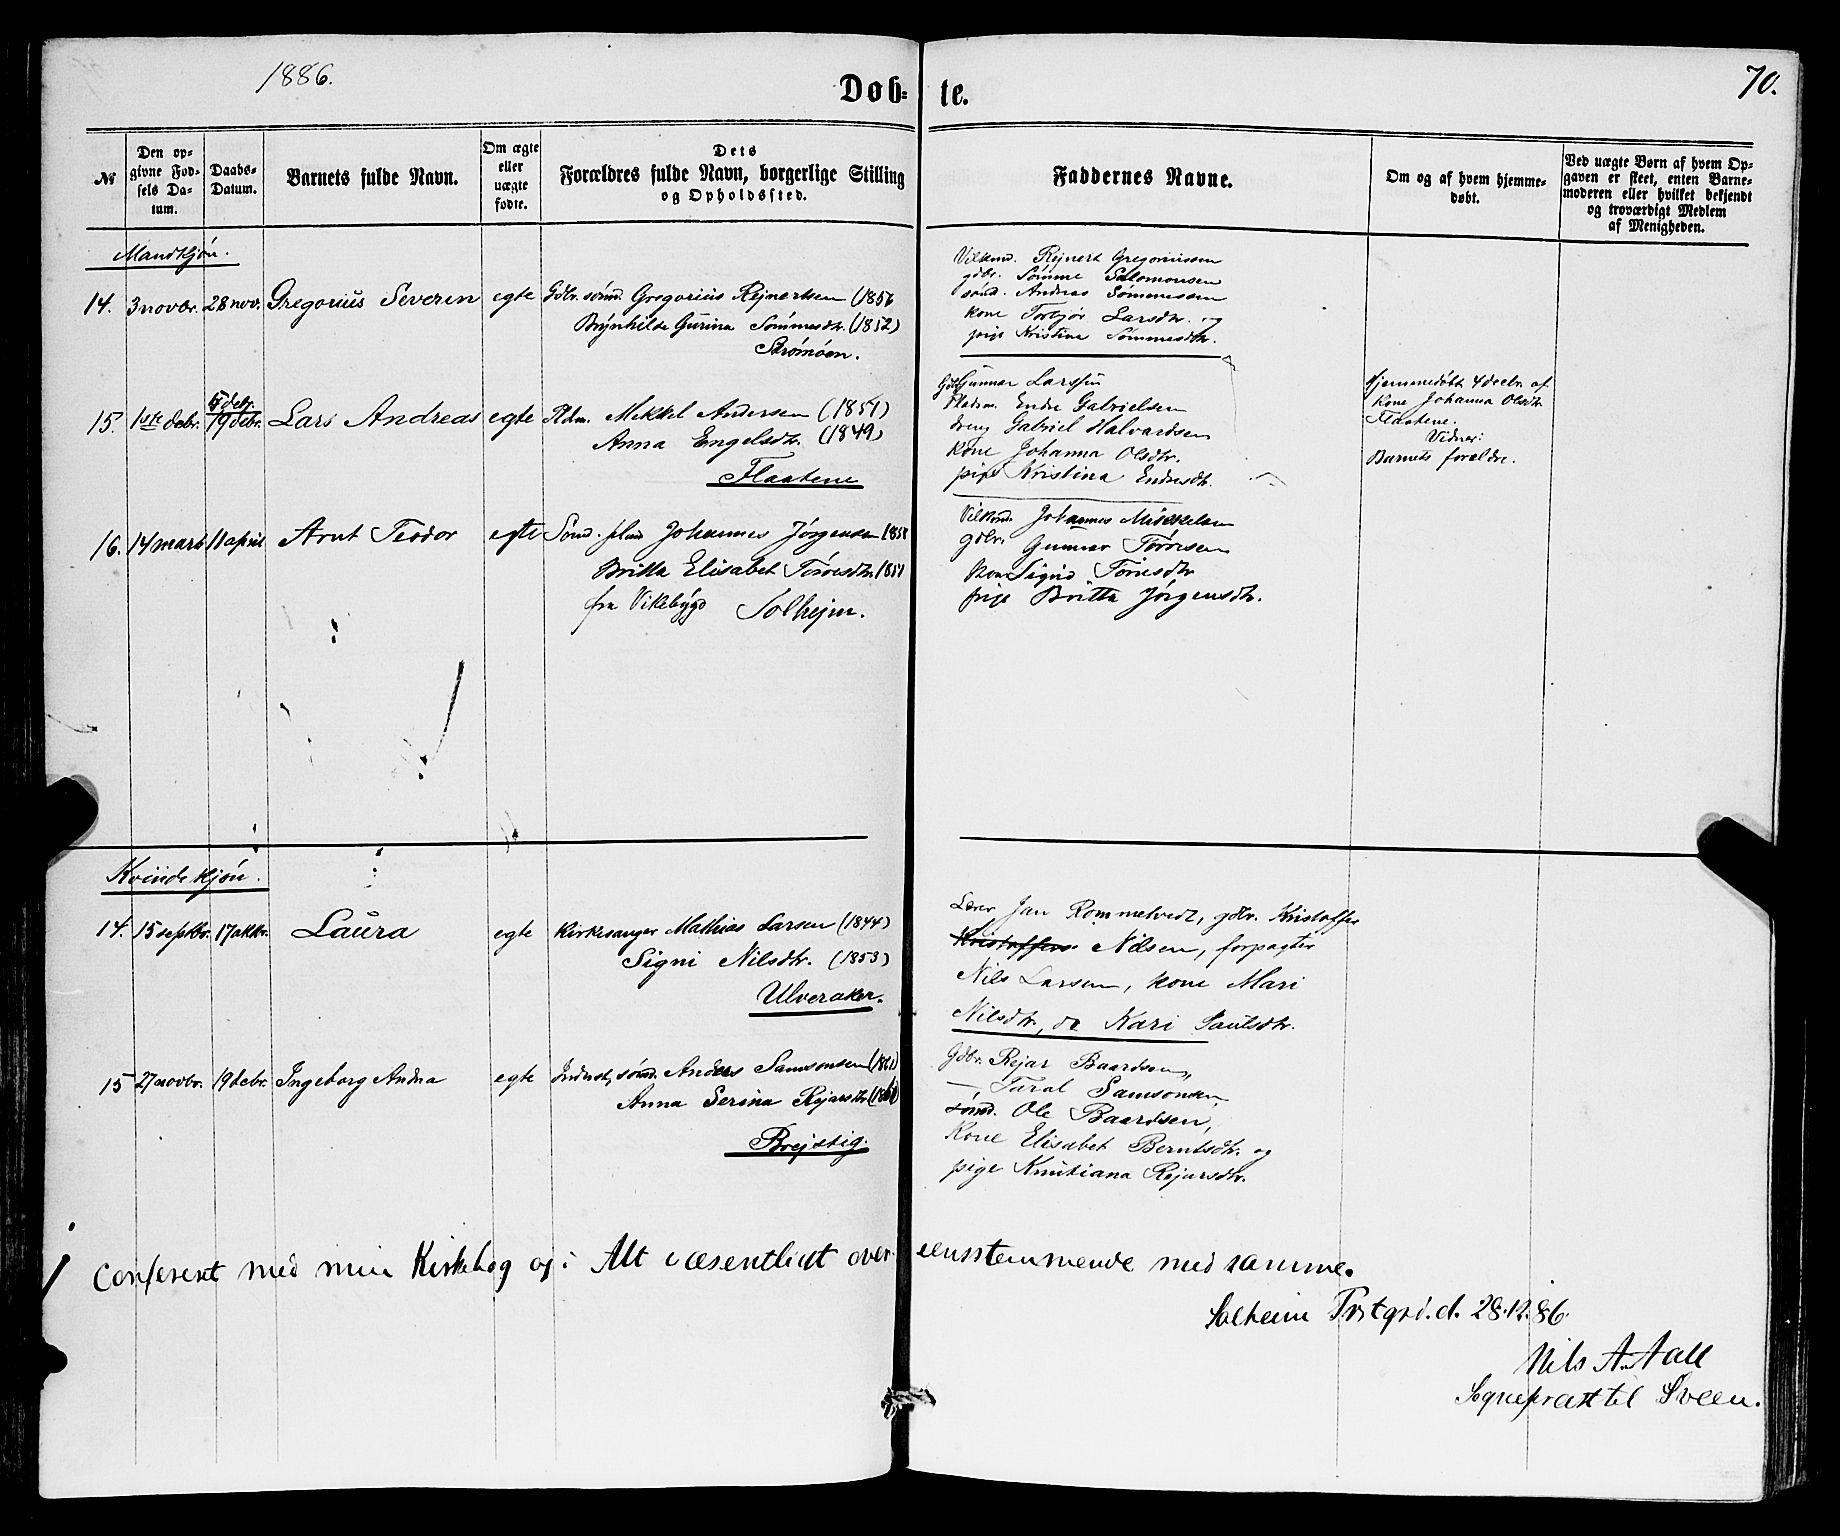 1886.
Døb-te.
70.
№
Den opgivne Fødsels Datum.
Daabs-Datum.
Barnets fulde Navn.
Om ægte eller uægte fødte.
Dets Forældres fulde Navn, borgerlige Stilling og Opholdssted.
Faddernes Navne.
Om og af hvem hjemmedøbt.
Ved uægte Børn af hvem Opgaven er skeet, enten Barnemoderen eller hvilket bekjendt og troværdigt Medlem af Menigheden.
Mandkjøn.
14. 3 novbr. 28 nov. Gregorius Severin egte Gdbr. sømd. Gregorius Rejnertsen (1856
Brynhilde Gurina Sømmesdtr. (1852)
Strømøen.
Vilkmd. Rejnert Gregoriussen
gdbr. Sømme Salomonsen
sømd. Andreas Sømmessen
kone Torbjør Larsdtr. og
pige Kristine Sømmesdtr.
15. 1ste debr. 5 debr. 19 debr. Lars Andreas egte Pldm. Mikkel Andersen (1851)
Anna Engelsdtr. (1849)
Flaatene
Gdb. Gunnar Larssen
Pladsm. Endre Gabrielsen
dreng Gabriel Halvardsen
kone Johanna Olsdtr.
pige Kristina Endresdtr.
Hjemmedøbt 4 decbr. af
kone Johanna Olsdtr.
Flaatene.
Vidner:
Barnets forældre.
16. 14 marts 11 april Arnt Teodor egte Sømd. Johannes Jørgensen 1851
Britta Elisabet Tøresdtr. 1851
fra Vikebygd Solhejm.
Vilkmd. Johannes Mikkelsen
gdbr. Gunnar Tøresen
kone Sigrid Tøresdtr
pige Britta Jørgensdtr.
Kvindekjøn.
14. 15 septbr. 17 oktbr. Laura egte Kirkesanger Mathias Larsen (1844)
Signi Nilsdtr. (1853)
Ulveraker.
Lærer Jan Rommetvedt, gdbr. Kristoffer
Kristoffers Nilsen, forpagter
Nils Larsen, kone Mari
Nilsdtr., do Kari Paulsdtr.
15 27 novbr. 19 debr. Ingeborg Andrea egte Inderst, sømd. Anders Samsonsen (1861)
Anna Serina Rejarsdtr (1861)
Brejstig.
Gdbr. Rejar Baardsen,
— Taral Samsonsen,
sømd. Ole Baardsen,
Kone Elisabet Berntsdtr. og
pige Knutiana Rejarsdtr.
Conferert med min Kirkebog og i Alt væsentligt overeensstemmende med samme.
Solheim Prstgrd. d. 28.12.86.
Nils A. Aall
Sognepræst til Sveen.